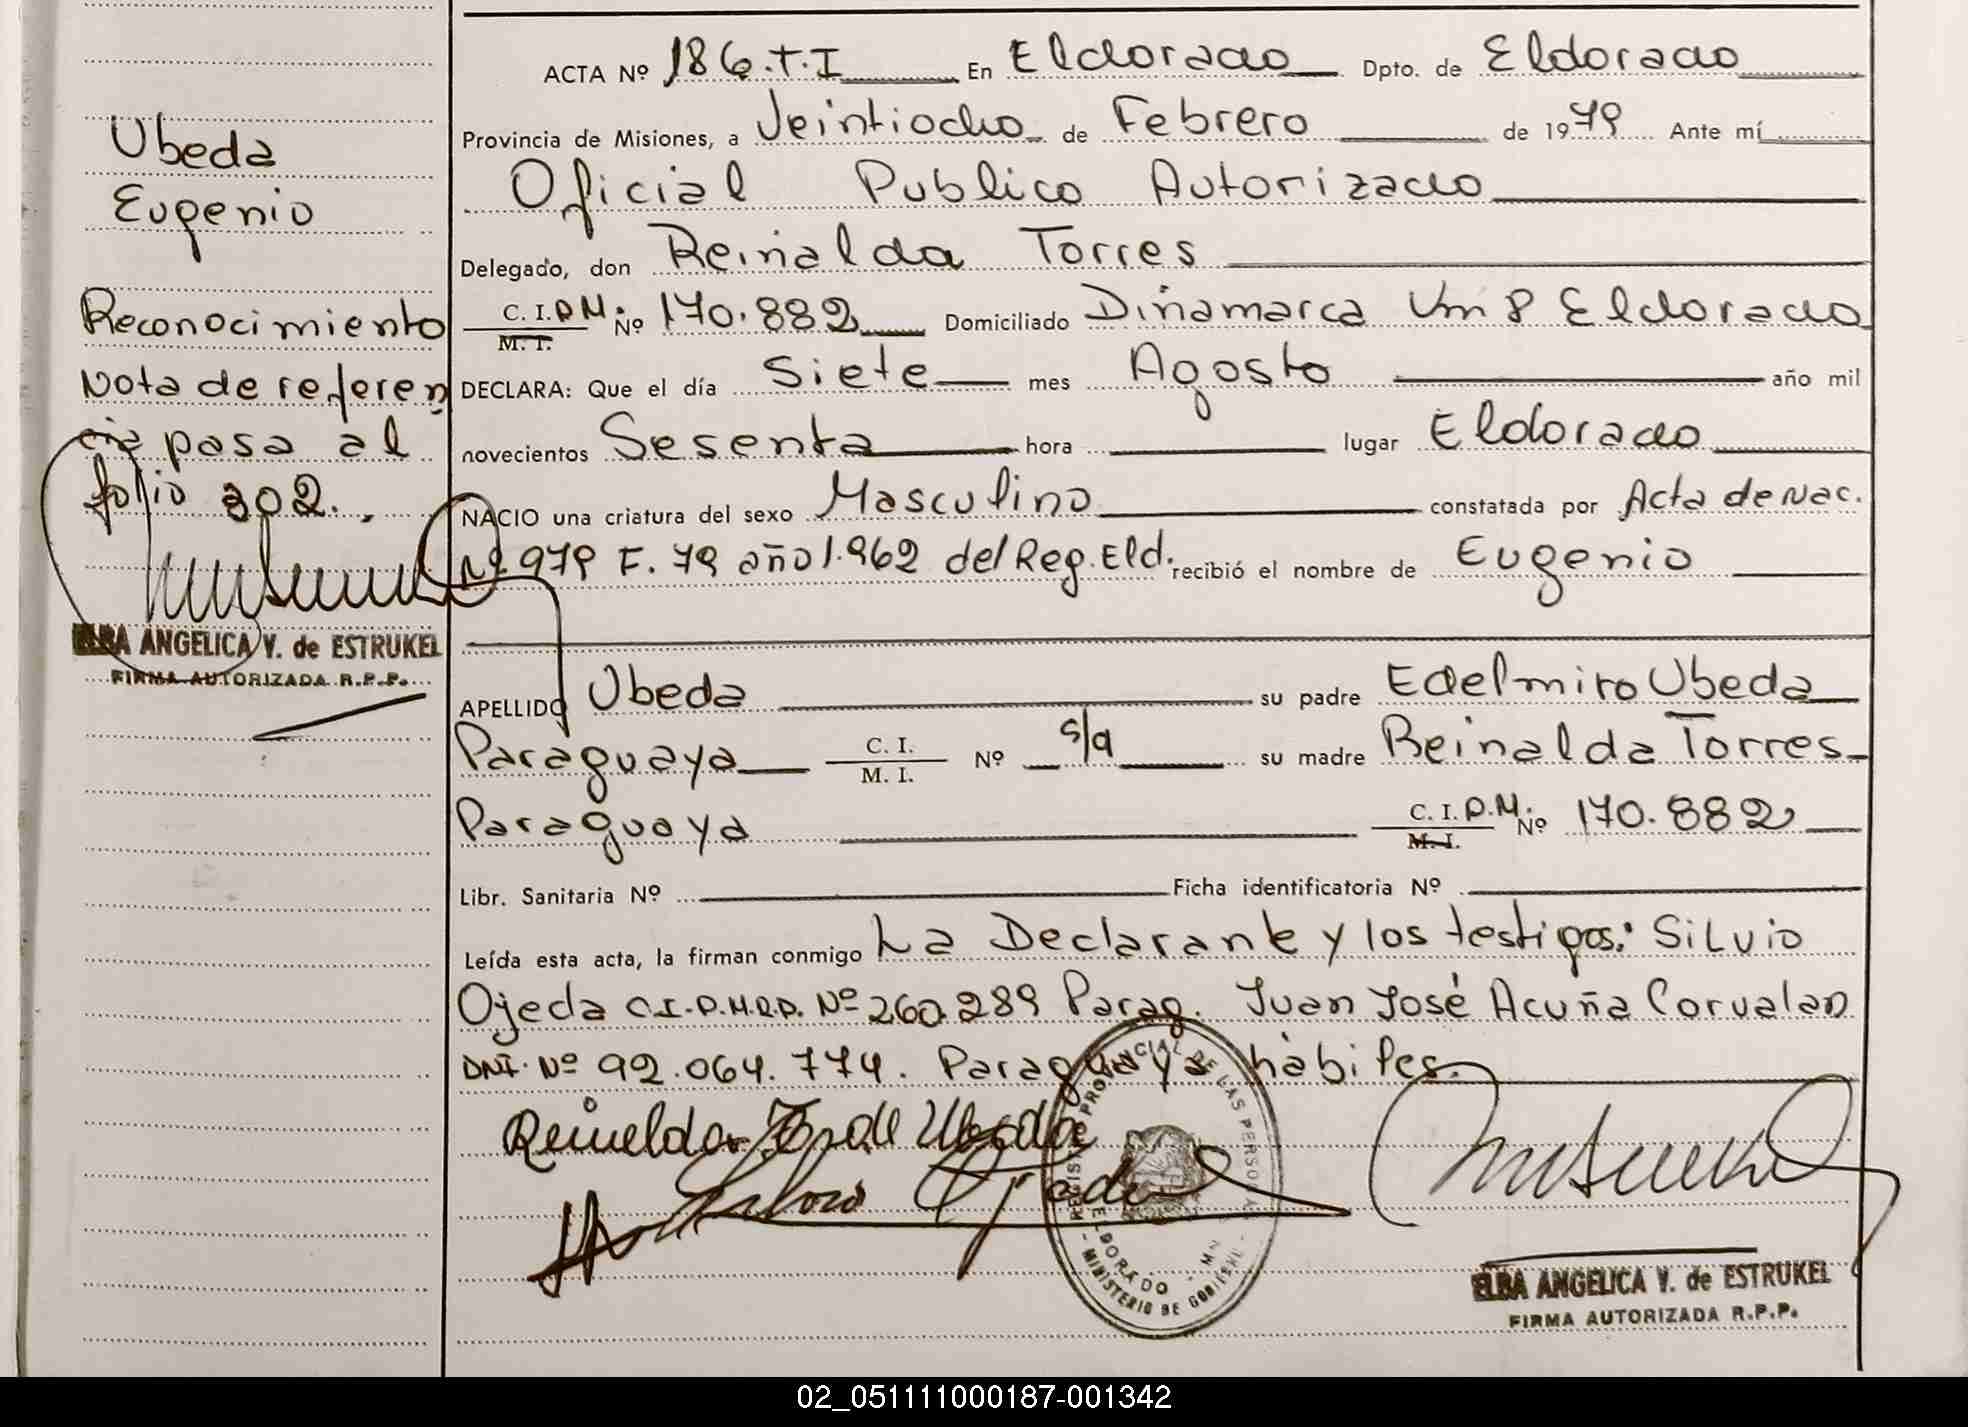 ACTA Nº 186.T.I En Eldorado Dpto. de Eldorado
Provincia de Misiones, a Veintiocho de Febrero de 1979 Ante mí
Oficial Publico Autorizado
Delegado, don Reinalda Torres
C. I. P.M. Nº 170.882 Domiciliado Dinamarca Km 8 Eldorado
M. I.
DECLARA: Que el día Siete mes Agosto año mil
novecientos Sesenta hora lugar Eldorado
NACIO una criatura del sexo Masculino constatada por Acta de Nac.
Nº 979 F. 79 año 1.962 del Reg. Eld. recibió el nombre de Eugenio
APELLIDO Ubeda su padre Edelmiro Ubeda
Paraguaya C. I. M. I. Nº s/a su madre Reinalda Torres
Paraguaya C. I. P.M. Nº 170.882
M. I.
Libr. Sanitaria Nº Ficha identificatoria Nº
Leída esta acta, la firman conmigo La Declarante y los testigos: Silvio
Ojeda C.I.P.M.R.P. Nº 260.289 Parag. Juan José Acuña Corvalan
DNI. Nº 92.064.774. Paraguaya hábiles.
Silvio Ojeda
REGISTRO PROVINCIAL DE LAS PERSONAS
ELDORADO - MNES
- MINISTERIO DE GOBIERNO -
ELBA ANGELICA V. de ESTRUKEL
FIRMA AUTORIZADA R.P.P.
Ubeda
Eugenio
Reconocimiento
Nota de referen
cia pasa al
folio 302.
ELBA ANGELICA V. de ESTRUKEL
FIRMA AUTORIZADA R.P.P.
02_051111000187-001342